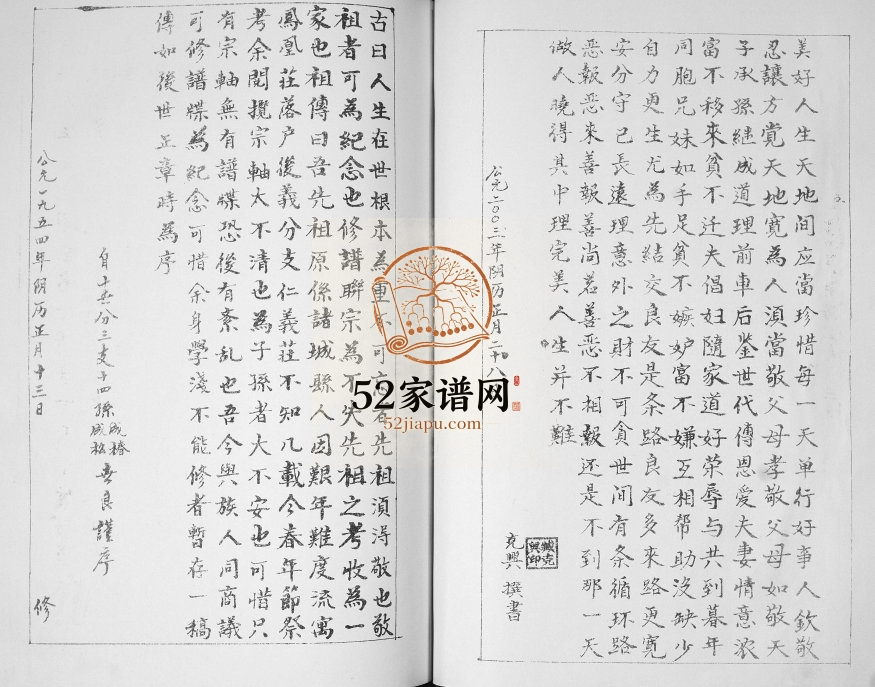 美好人生天地间应當珍惜每一天单行好事人欽敬
忍讓方覚天地寛為人須當敬父母孝敬父母如敬天
子承孫继成道理前車后鉴世代傳恩爱夫妻情意浓
富不移来貧不迁夫倡妇隨家道好荣辱与共到暮年
同胞兄妹如手足貧不嫉妒富不嫌互相帮助没缺少
自力更生尤為先結交良友是条路良友多来路更寛
安分守己長遠理意外之財不可貪世間有条循环路
恶報恶来善報善尚若善恶不相報还是不到那一天
做人曉得其中理完美人生并不難
公元二00三年阴历正月二十八
克興 撰書
臧克興印
古曰人生在世根本為重不可忘者先祖須得敬也敬
祖者可為紀念也修譜聯宗為不失先祖之考收為一
家也祖傳曰吾先祖原係諸城縣人因艱年難度流寓
鳳凰莊落户後義分支仁義莊不知几載今春年節祭
考余閲攬宗軸太不清也為子孫者大不安也可惜只
有宗軸無有譜牒恐後有紊乱也吾今與族人同商議
可修譜牒為紀念可惜余身學淺不能修者暫存一稿
傳如後世正章時為序
公元一九五四年阴历正月十三日
分三支十四孫 成椿 良謹序
修
52家谱网
52jiapu.com